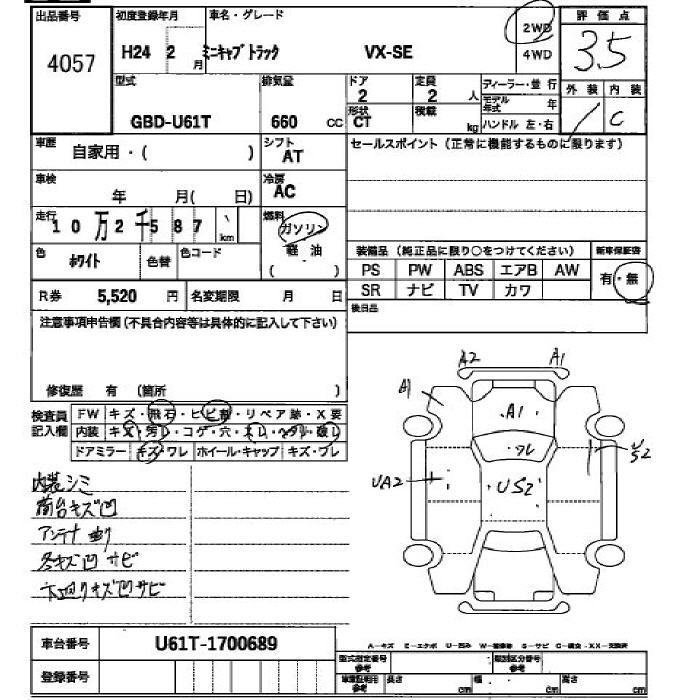 出品番号 初度登録年月 車名・グレード 2WD 評価点
4057 H24 2月 ミニキャブトラック VX-SE 4WD 3.5
型式 排気量 ドア 定員 ディーラー・並行 外装 内装
GBD-U61T 660 CC 2 2 人 モデル年式 年 C
形状 CT 積載 kg ハンドル 左・右
車歴 自家用・( ) シフト AT セールスポイント(正常に機能するものに限ります)
車検 年 月( 日) 冷房 AC
走行 10万2千587 km 燃料 ガソリン
軽油
( )
色 ホワイト 色替 色コード 装備品(純正品に限り○をつけてください) 新車保証書
PS PW ABS エアB AW 有・無
R券 5,520 円 名変期限 月 日 SR ナビ TV カワ
注意事項申告欄(不具合内容等は具体的に記入して下さい) 後日品
修復歴 有 (箇所 )
検査員記入欄 FW キズ・飛石・ヒビ有・リペア跡・X要
内装 キズ・汚レ・コゲ・穴・スレ・ヘタリ・破レ
ドアミラー キズ・ワレ ホイール・キャップ キズ・ワレ
A2 A1
A1 A1
ワレ US2
UA2 US2
内装シミ
荷台キズ凹
アンテナ曲り
各キズ凹サビ
下回りキズ凹サビ
車台番号 U61T-1700689
A-キズ E-エクボ U-凹み W-補修跡 S-サビ C-腐食 X・XX-交換
登録番号 型式指定番号参考 類別区分番号参考
車庫証明用参考 長さ cm 幅 cm 高さ cm